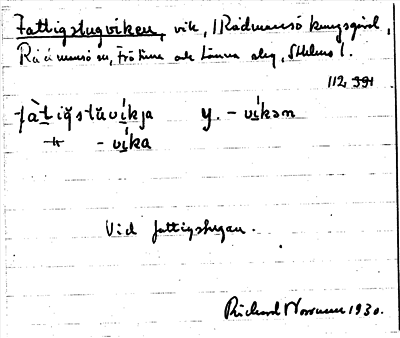 Fattigstugviken, vik, Rådmansö kungsgård,
Rådmansö sn, Frötuna och Länna skg, Sthlms l.
112, 391
fàtigstŭvíkja y. -víkən
-víka
Vid fattigstugan.
Richard Norman 1930.